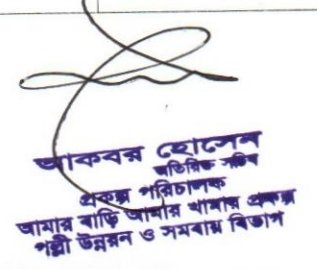 আকবর হোসেন
অতিরিক্ত সচিব
প্রকল্প পরিচালক
আমার বাড়ি আমার খামার প্রকল্প
পল্লী উন্নয়ন ও সমবায় বিভাগ